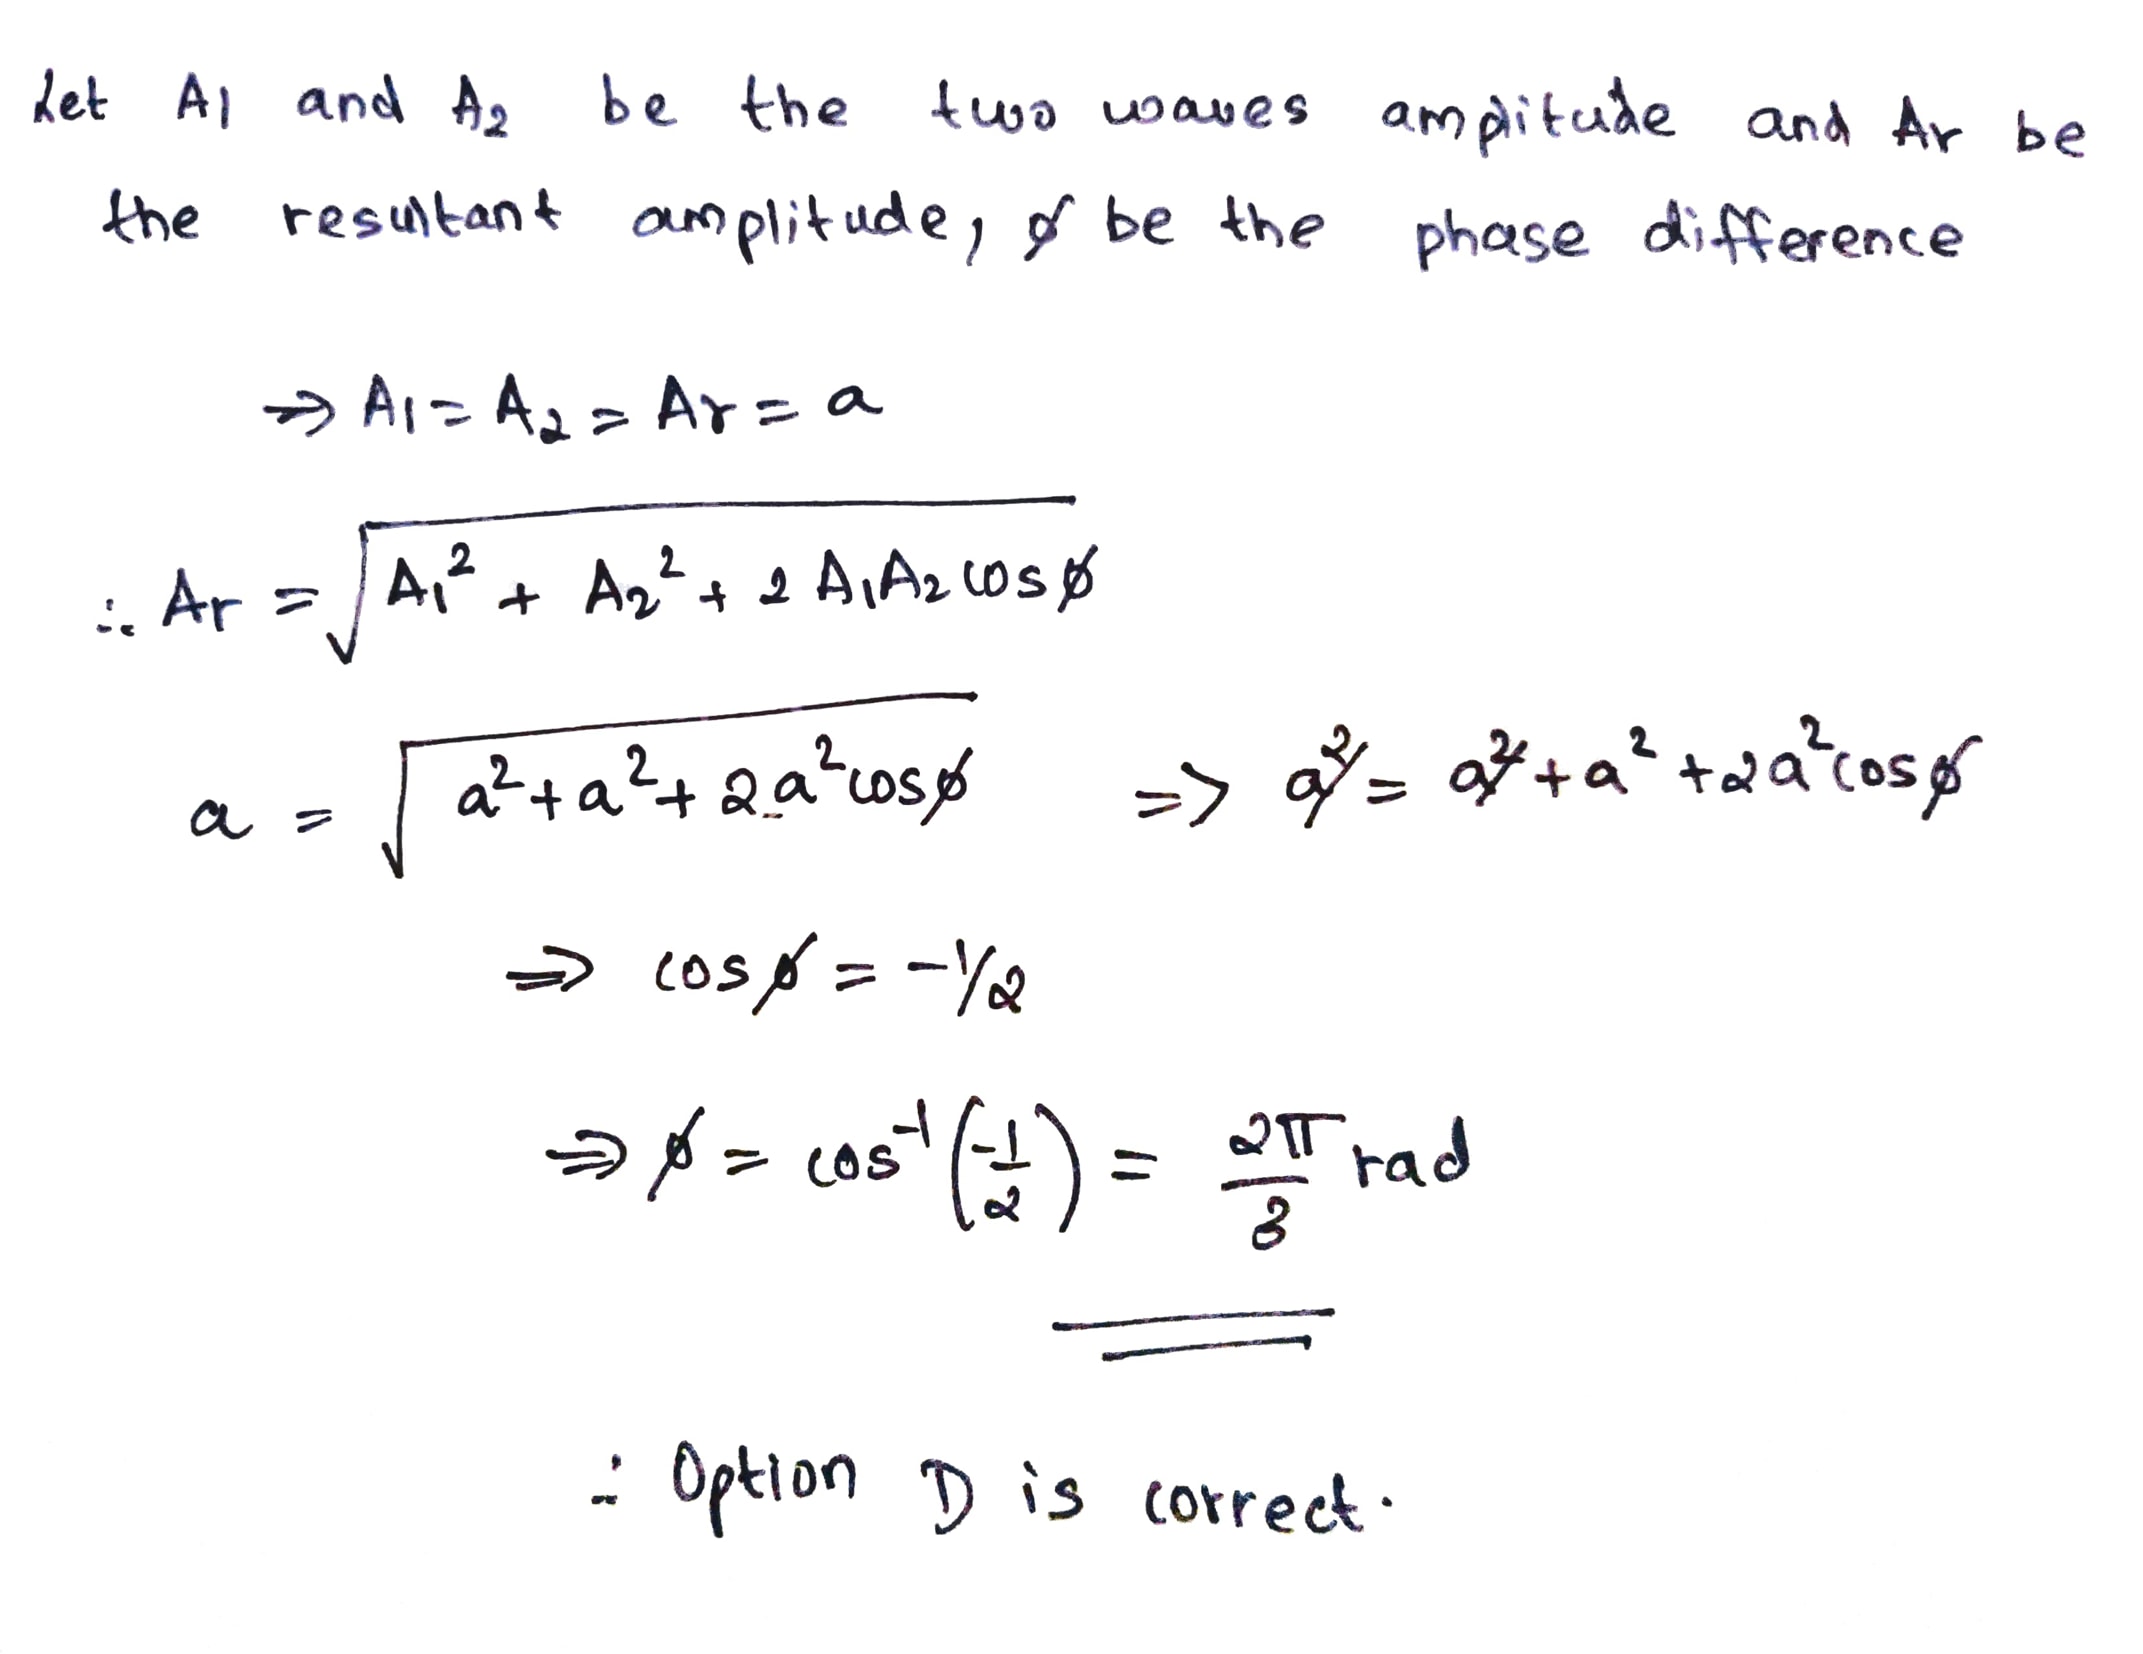 Let A1 and A2 be the two waves amplitude and Ar be
the resultant amplitude, ø be the phase difference
⇒ A1 = A2 = Ar = a
∴ Ar = √(A1² + A2² + 2 A1A2 cosø)
a = √(a² + a² + 2a²cosø) => a² = a² + a² + 2a²cosø
⇒ cosø = -1/2
⇒ ø = cos⁻¹(-1/2) = 2π/3 rad
∴ Option D is correct.